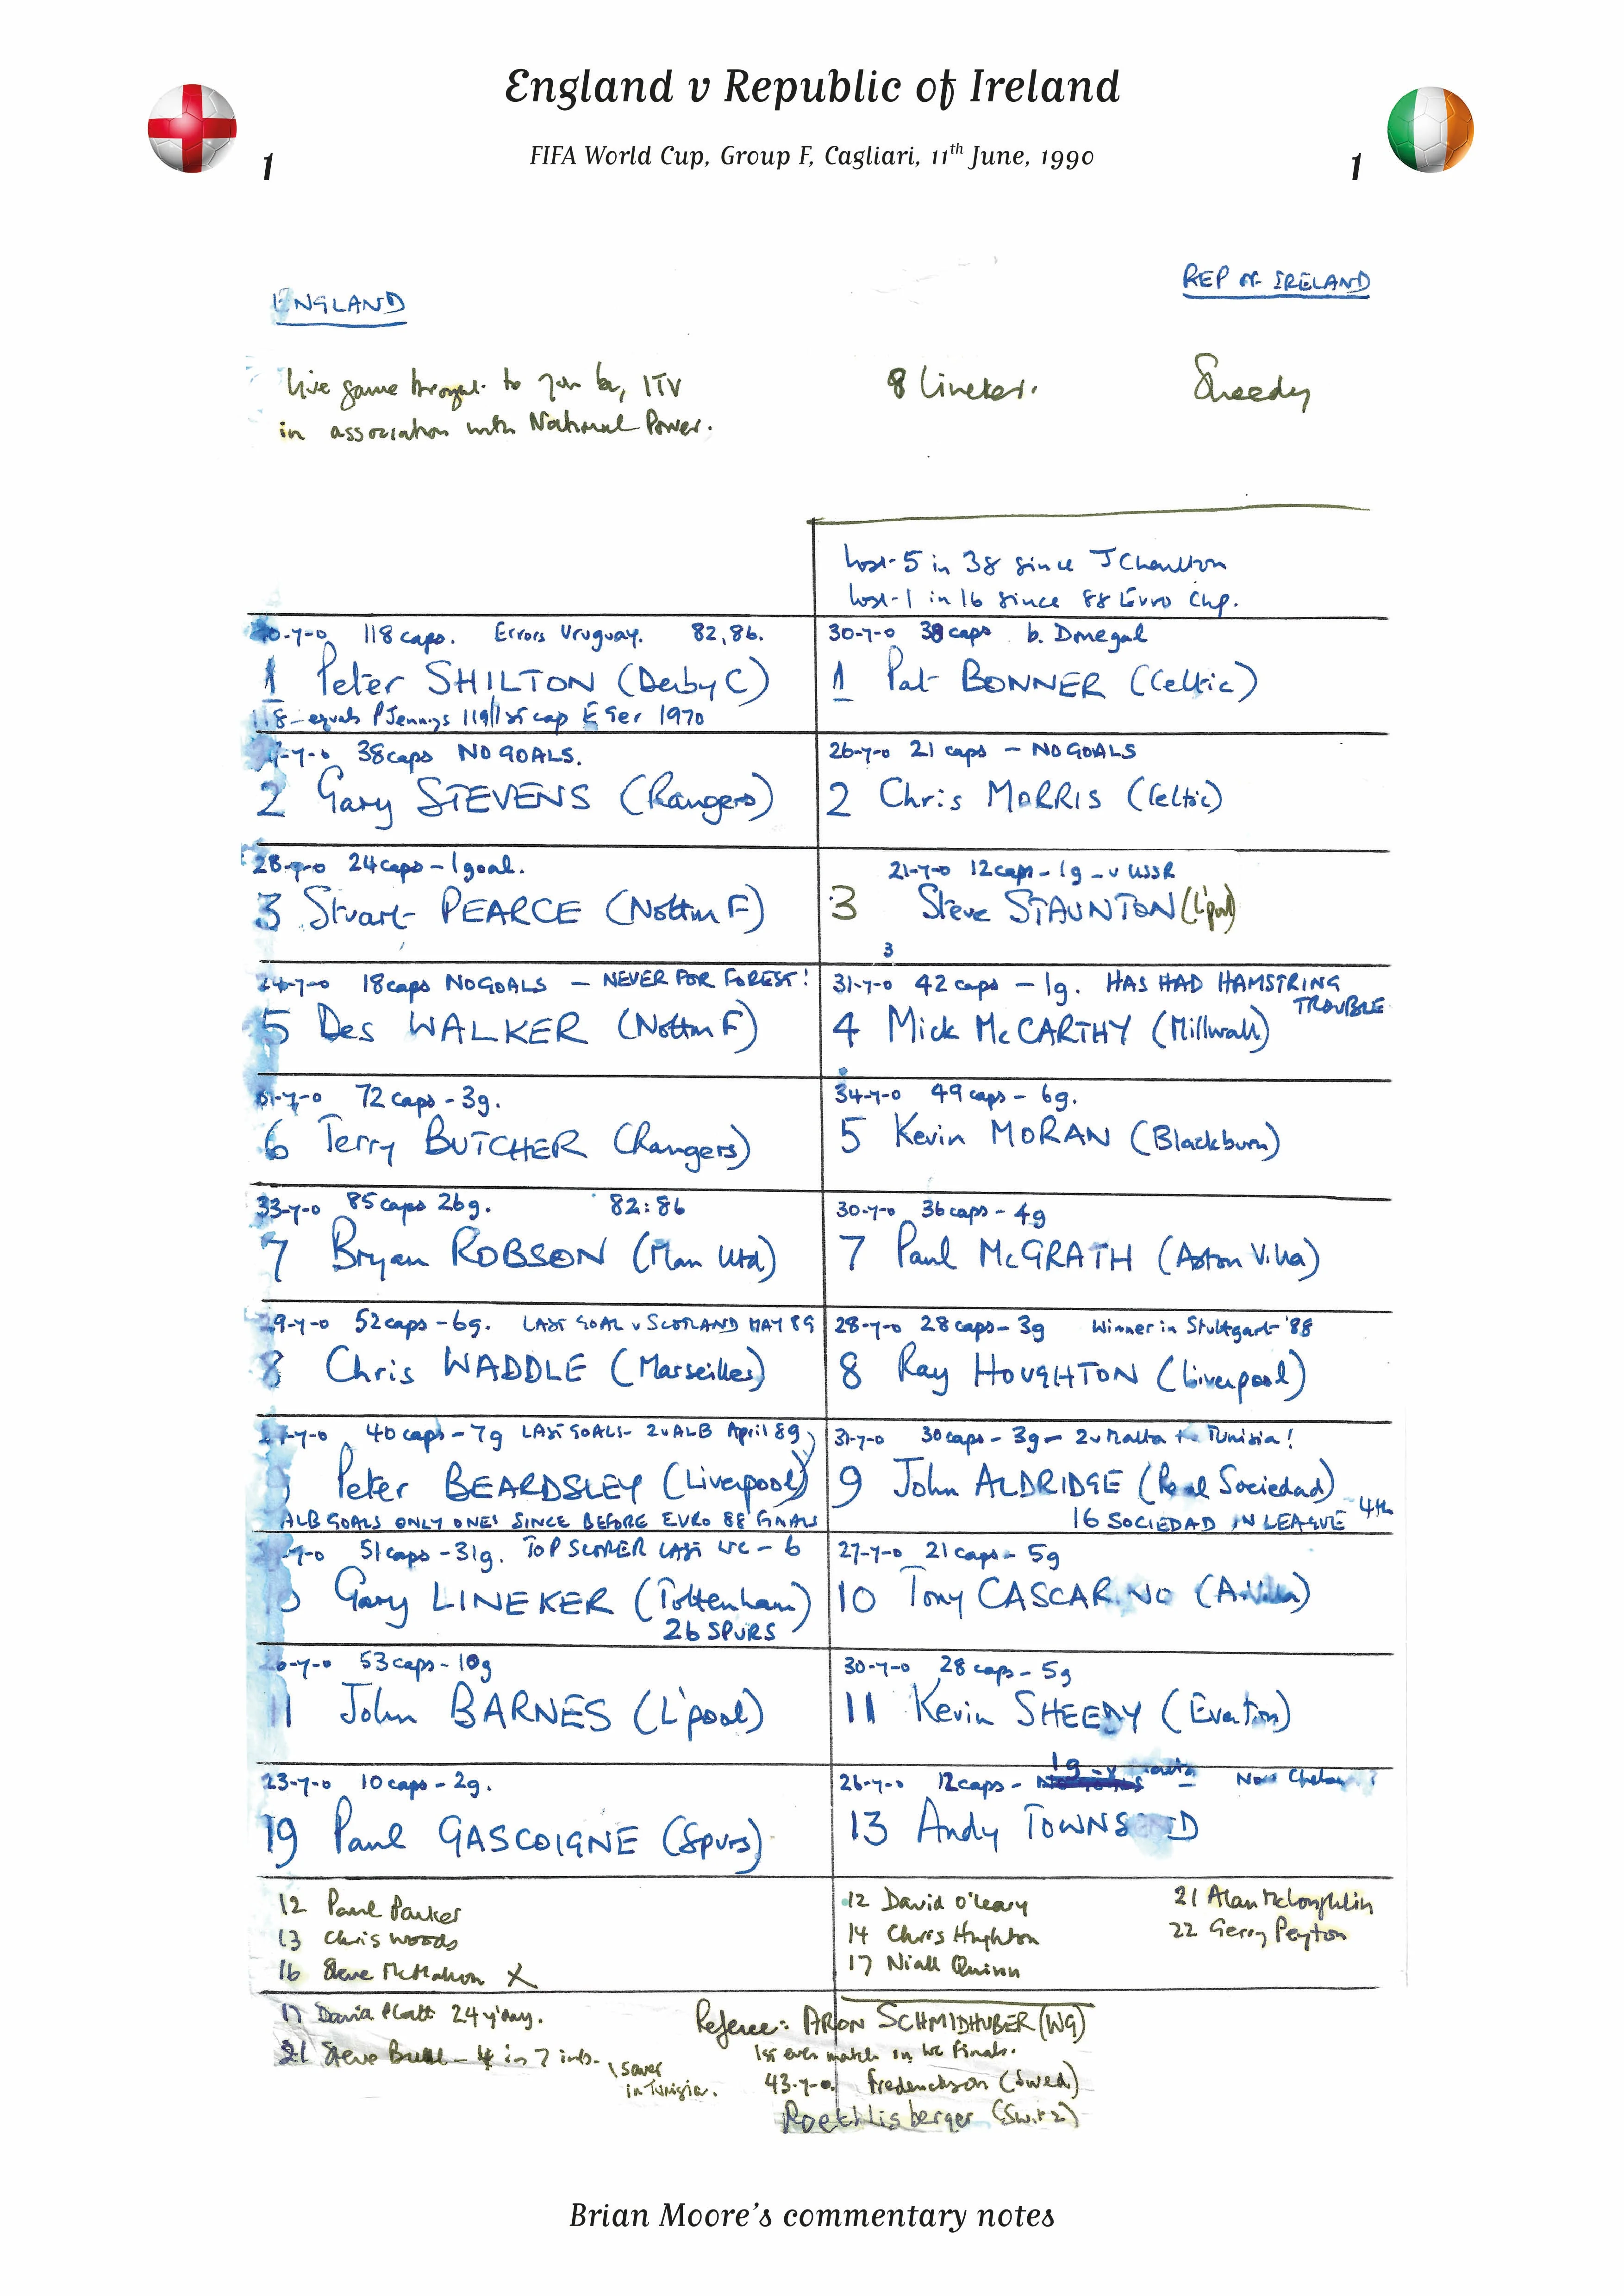 England v Republic of Ireland
FIFA World Cup, Group F, Cagliari, 11th June, 1990
1
1
ENGLAND
REP OF IRELAND
Live game to you by ITV
in association with National Power.
8 Lineker.
Sheedy
Lost-5 in 38 since J Charlton
Lost-1 in 16 since 88 Euro Chp.
40-y-o 118 caps. Errors Uruguay. 82,86.
1 Peter SHILTON (Derby C)
118 - equals P Jennings 119/1st cap E Ger 1970
30-y-o 38 caps b. Donegal
1 Pat BONNER (Celtic)
-y-o 38 caps NO GOALS.
2 Gary STEVENS (Rangers)
26-y-o 21 caps - NO GOALS
2 Chris MORRIS (Celtic)
28-y-o 24 caps - 1 goal.
3 Stuart PEARCE (Nottm F)
21-y-o 12 caps - 1g - v USSR
3 Steve STAUNTON (L'pool)
3
24-y-o 18 caps NO GOALS - NEVER FOR FOREST!
5 Des WALKER (Nottm F)
31-y-o 42 caps - 1g. HAS HAD HAMSTRING TROUBLE
4 Mick McCARTHY (Millwall)
31-y-o 72 caps - 3g.
6 Terry BUTCHER (Rangers)
34-y-o 49 caps - 6g.
5 Kevin MORAN (Blackburn)
33-y-o 85 caps 26g. 82:86
7 Bryan ROBSON (Man Utd)
30-y-o 36 caps - 4g
7 Paul McGRATH (Aston Villa)
29-y-o 52 caps - 6g. LAST GOAL v SCOTLAND MAY 89
8 Chris WADDLE (Marseilles)
28-y-o 28 caps - 3g Winner in Stuttgart '88
8 Ray HOUGHTON (Liverpool)
-y-o 40 caps - 7g LAST GOALS - 2 v ALB April 89
9 Peter BEARDSLEY (Liverpool)
ALB GOALS ONLY ONES SINCE BEFORE EURO 88 FINALS
31-y-o 30 caps - 3g - 2 v Malta + Tunisia!
9 John ALDRIDGE (Real Sociedad)
16 SOCIEDAD IN LEAGUE - 4th
-y-o 51 caps - 31g. TOP SCORER LAST WC - 6
Gary LINEKER (Tottenham)
26 SPURS
27-y-o 21 caps - 5g
10 Tony CASCARINO (A. Villa)
26-y-o 53 caps - 10g
11 John BARNES (L'pool)
30-y-o 28 caps - 5g
11 Kevin SHEEDY (Everton)
23-y-o 10 caps - 2g.
19 Paul GASCOIGNE (Spurs)
26-y-o 12 caps - 1g - v Malta Now Chelsea?
13 Andy TOWNSEND
12 Paul Parker
13 Chris Woods
16 Steve McMahon X
12 David O'Leary
14 Chris Hughton
17 Niall Quinn
21 Alan McLoughlin
22 Gerry Peyton
17 David Platt 24 y'day.
21 Steve Bull - 4 in 7 ints. \ scorer
in Tunisia.
Referee: ARON SCHMIDHUBER (WG)
1st ever match in WC Finals.
43-y-o. Fredericksson (Swed)
Roethlisberger (Switz)
Brian Moore's commentary notes